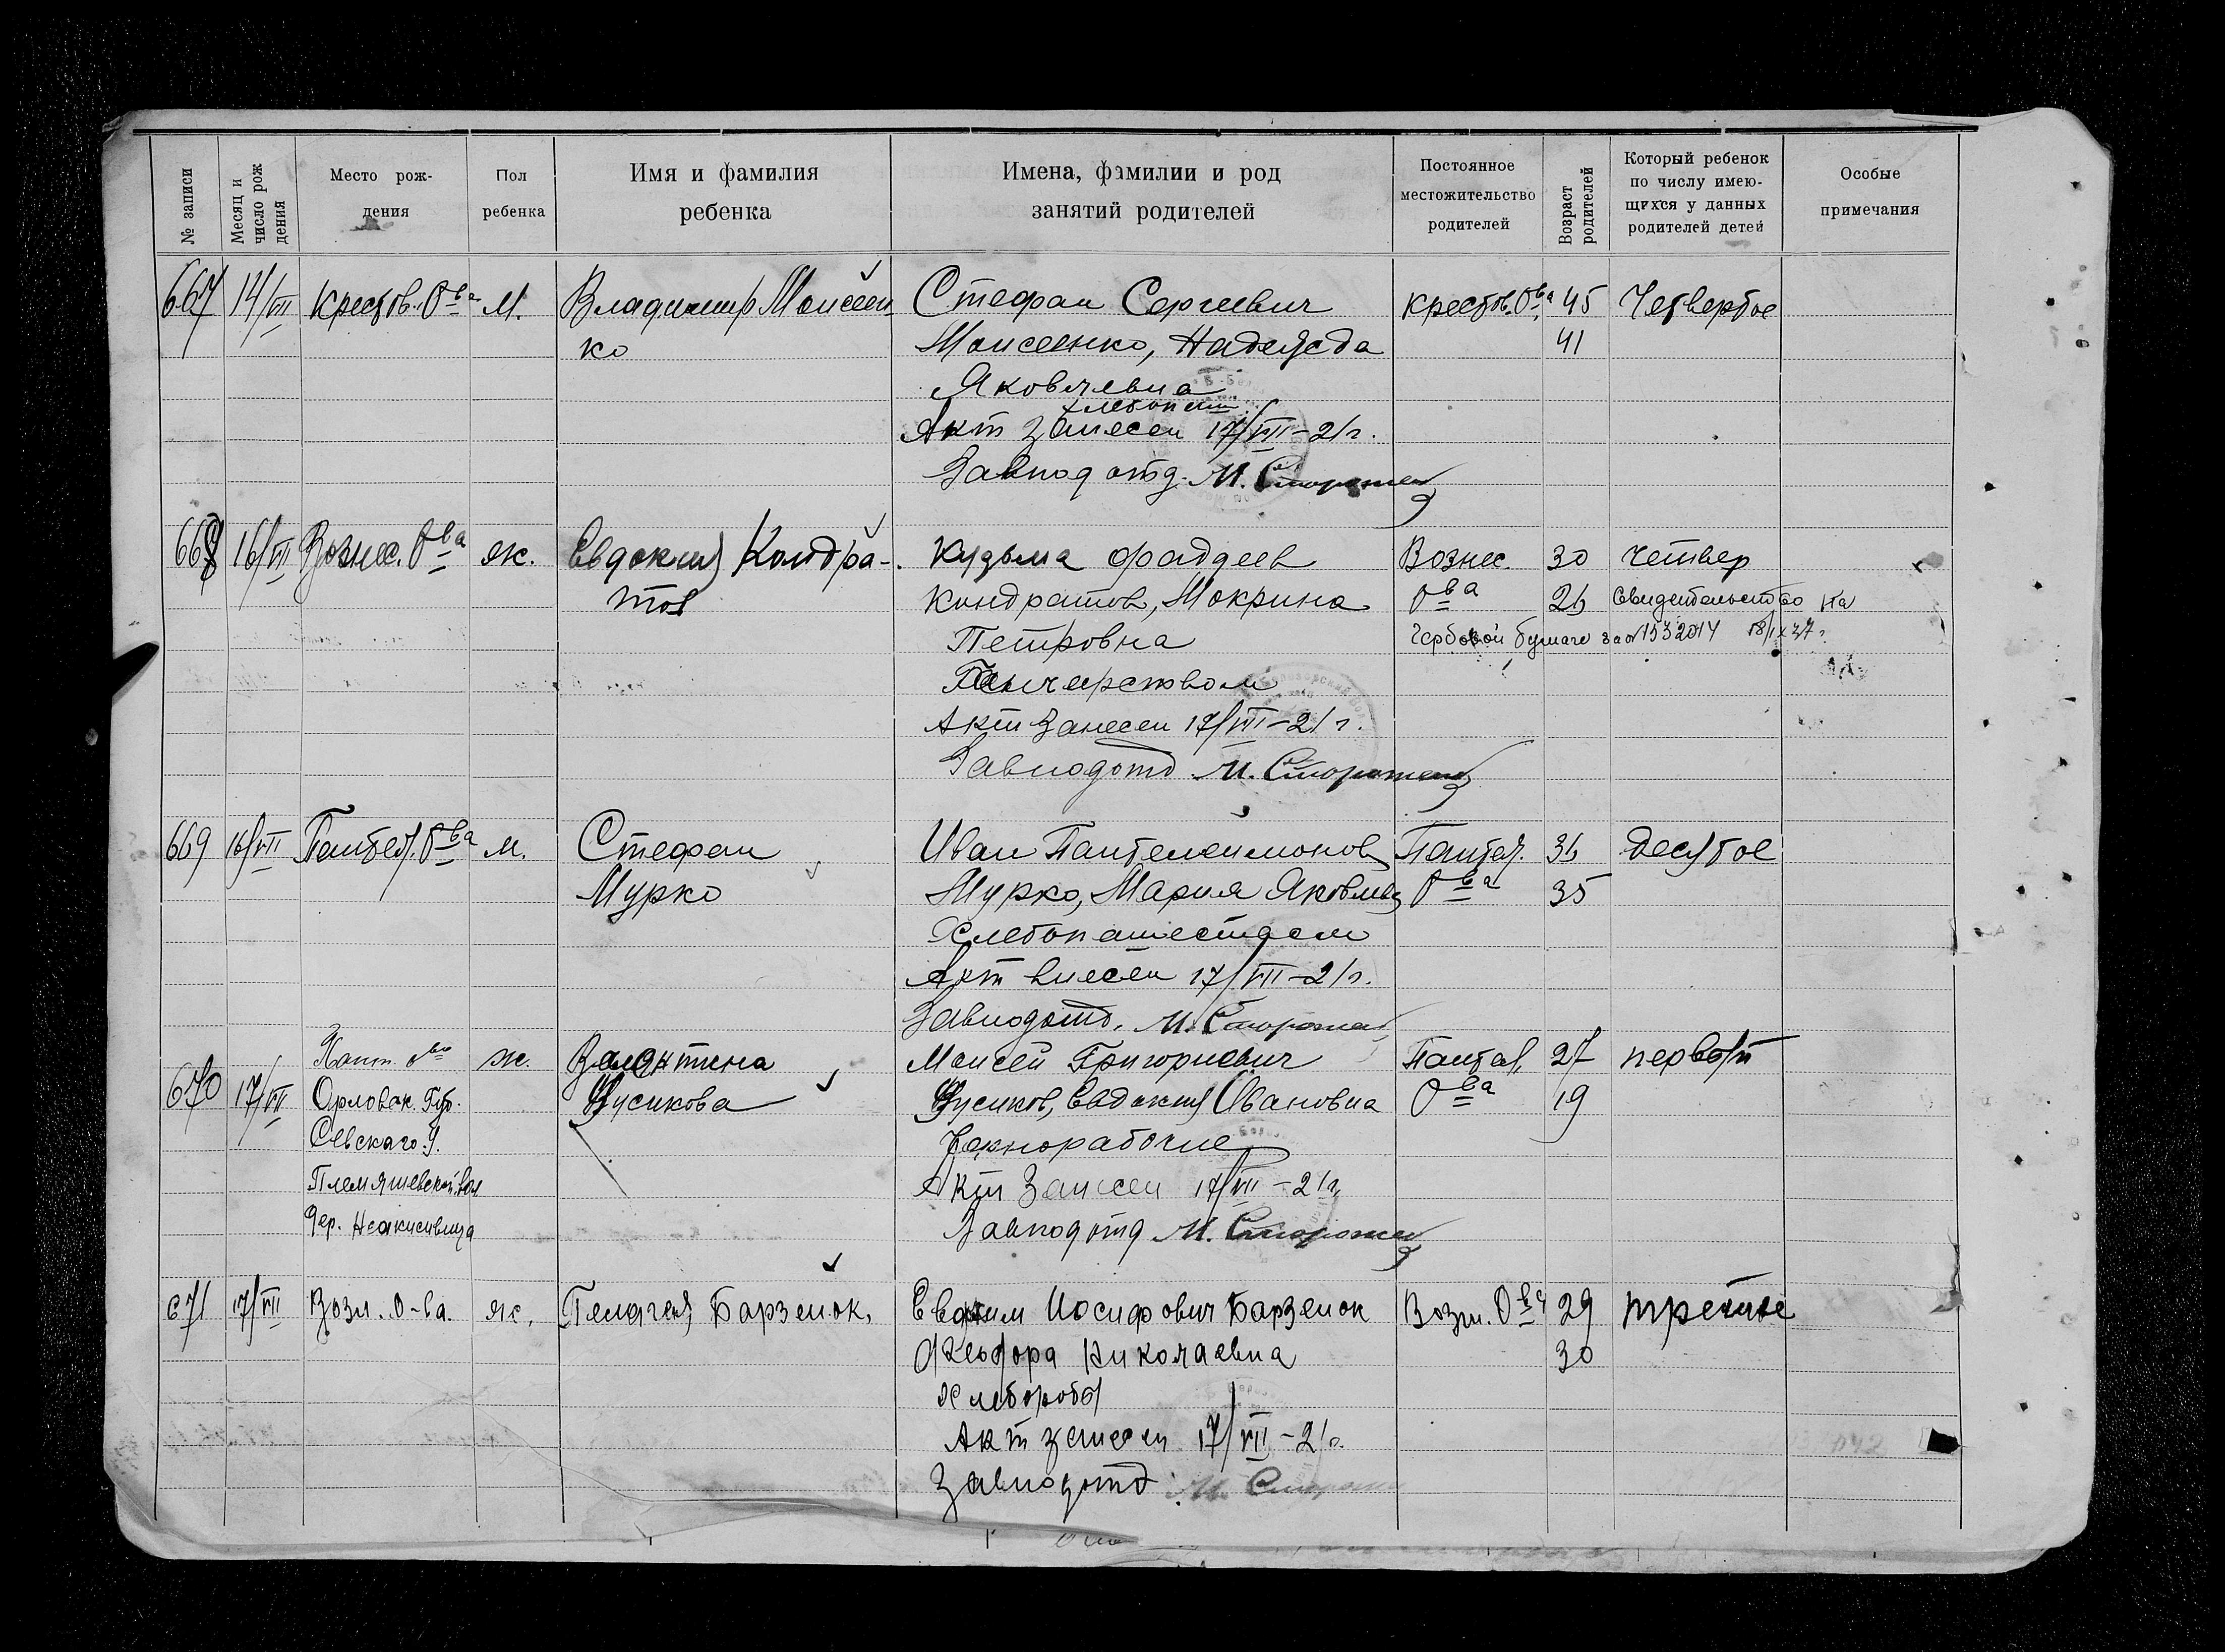 № записи
Месяц и число рождения
Место рождения
Пол ребенка
Имя и фамилия ребенка
Имена, фамилии и род занятий родителей
Постоянное местожительство родителей
Возраст родителей
Который ребенок по числу имеющихся у данных родителей детей
Особые примечания
667 14/VII Крестов. О-ва м. Владимир Моисеен- Стефан Сергиевич Крестов. О-ва 45 Четвертое
ко Моисеенко, Надежда 41
Яковлевна
хлебопаш.
Акт занесен 17/VII-21г.
Завпод отд. М. Стороженко
668 16/VII Вознес. О-ва ж. Евдокия Кондра- Кузьма Фаддеев Вознес. 30 четвер
това Кондратов, Мокрина О-ва 26 Свидетельство на
Петровна гербовой бумаге за № 1532014 18/IX 37г.
Акт занесен 17/VII-21г.
Завподотд М. Стороженко
669 16/VII Пантел. О-ва м. Стефан Иван Пантелеимонов Пантел. 36 десятое
Мурко Мурко, Мария Яковлев О-ва 35
Хлебопашеством
Акт внесен 17/VII-21г.
Завподотд. М. Стороженко
Пант. о-ва ж. Валентина Моисей Григориевич Пантел. 27 первый
670 17/VII Орловск. Губ. Фусикова Фусиков, Евдокия Ивановна О-ва 19
Севскаго У. Чернорабочие
вол. Акт занесен 17/VII-21г.
Дер. Завподотд М. Стороженко
671 17/VII Возн. О-ва. ж. Пелагея Барзенок. Евдоким Иосифович Барзенок Возн. О-ва 29 третье
Феодора Николаевна 30
Хлеборобы
Акт занесен 17/VII-21г.
Завподотд. М. Стороженко